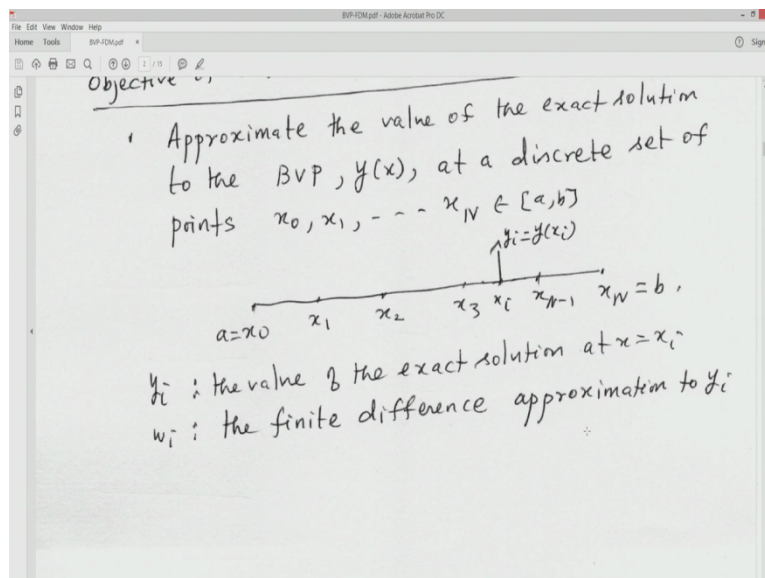 BVP-FDM.pdf - Adobe Acrobat Pro DC
File Edit View Window Help
Home Tools BVP-FDM.pdf × Sign
2 / 15
Objective
• Approximate the value of the exact solution
to the BVP, y(x), at a discrete set of
points x₀, x₁, - - - x_N ∈ [a,b]
yᵢ=y(xᵢ)
a=x₀ x₁ x₂ x₃ xᵢ x_N-1 x_N = b.
yᵢ : the value of the exact solution at x=xᵢ
wᵢ : the finite difference approximation to yᵢ